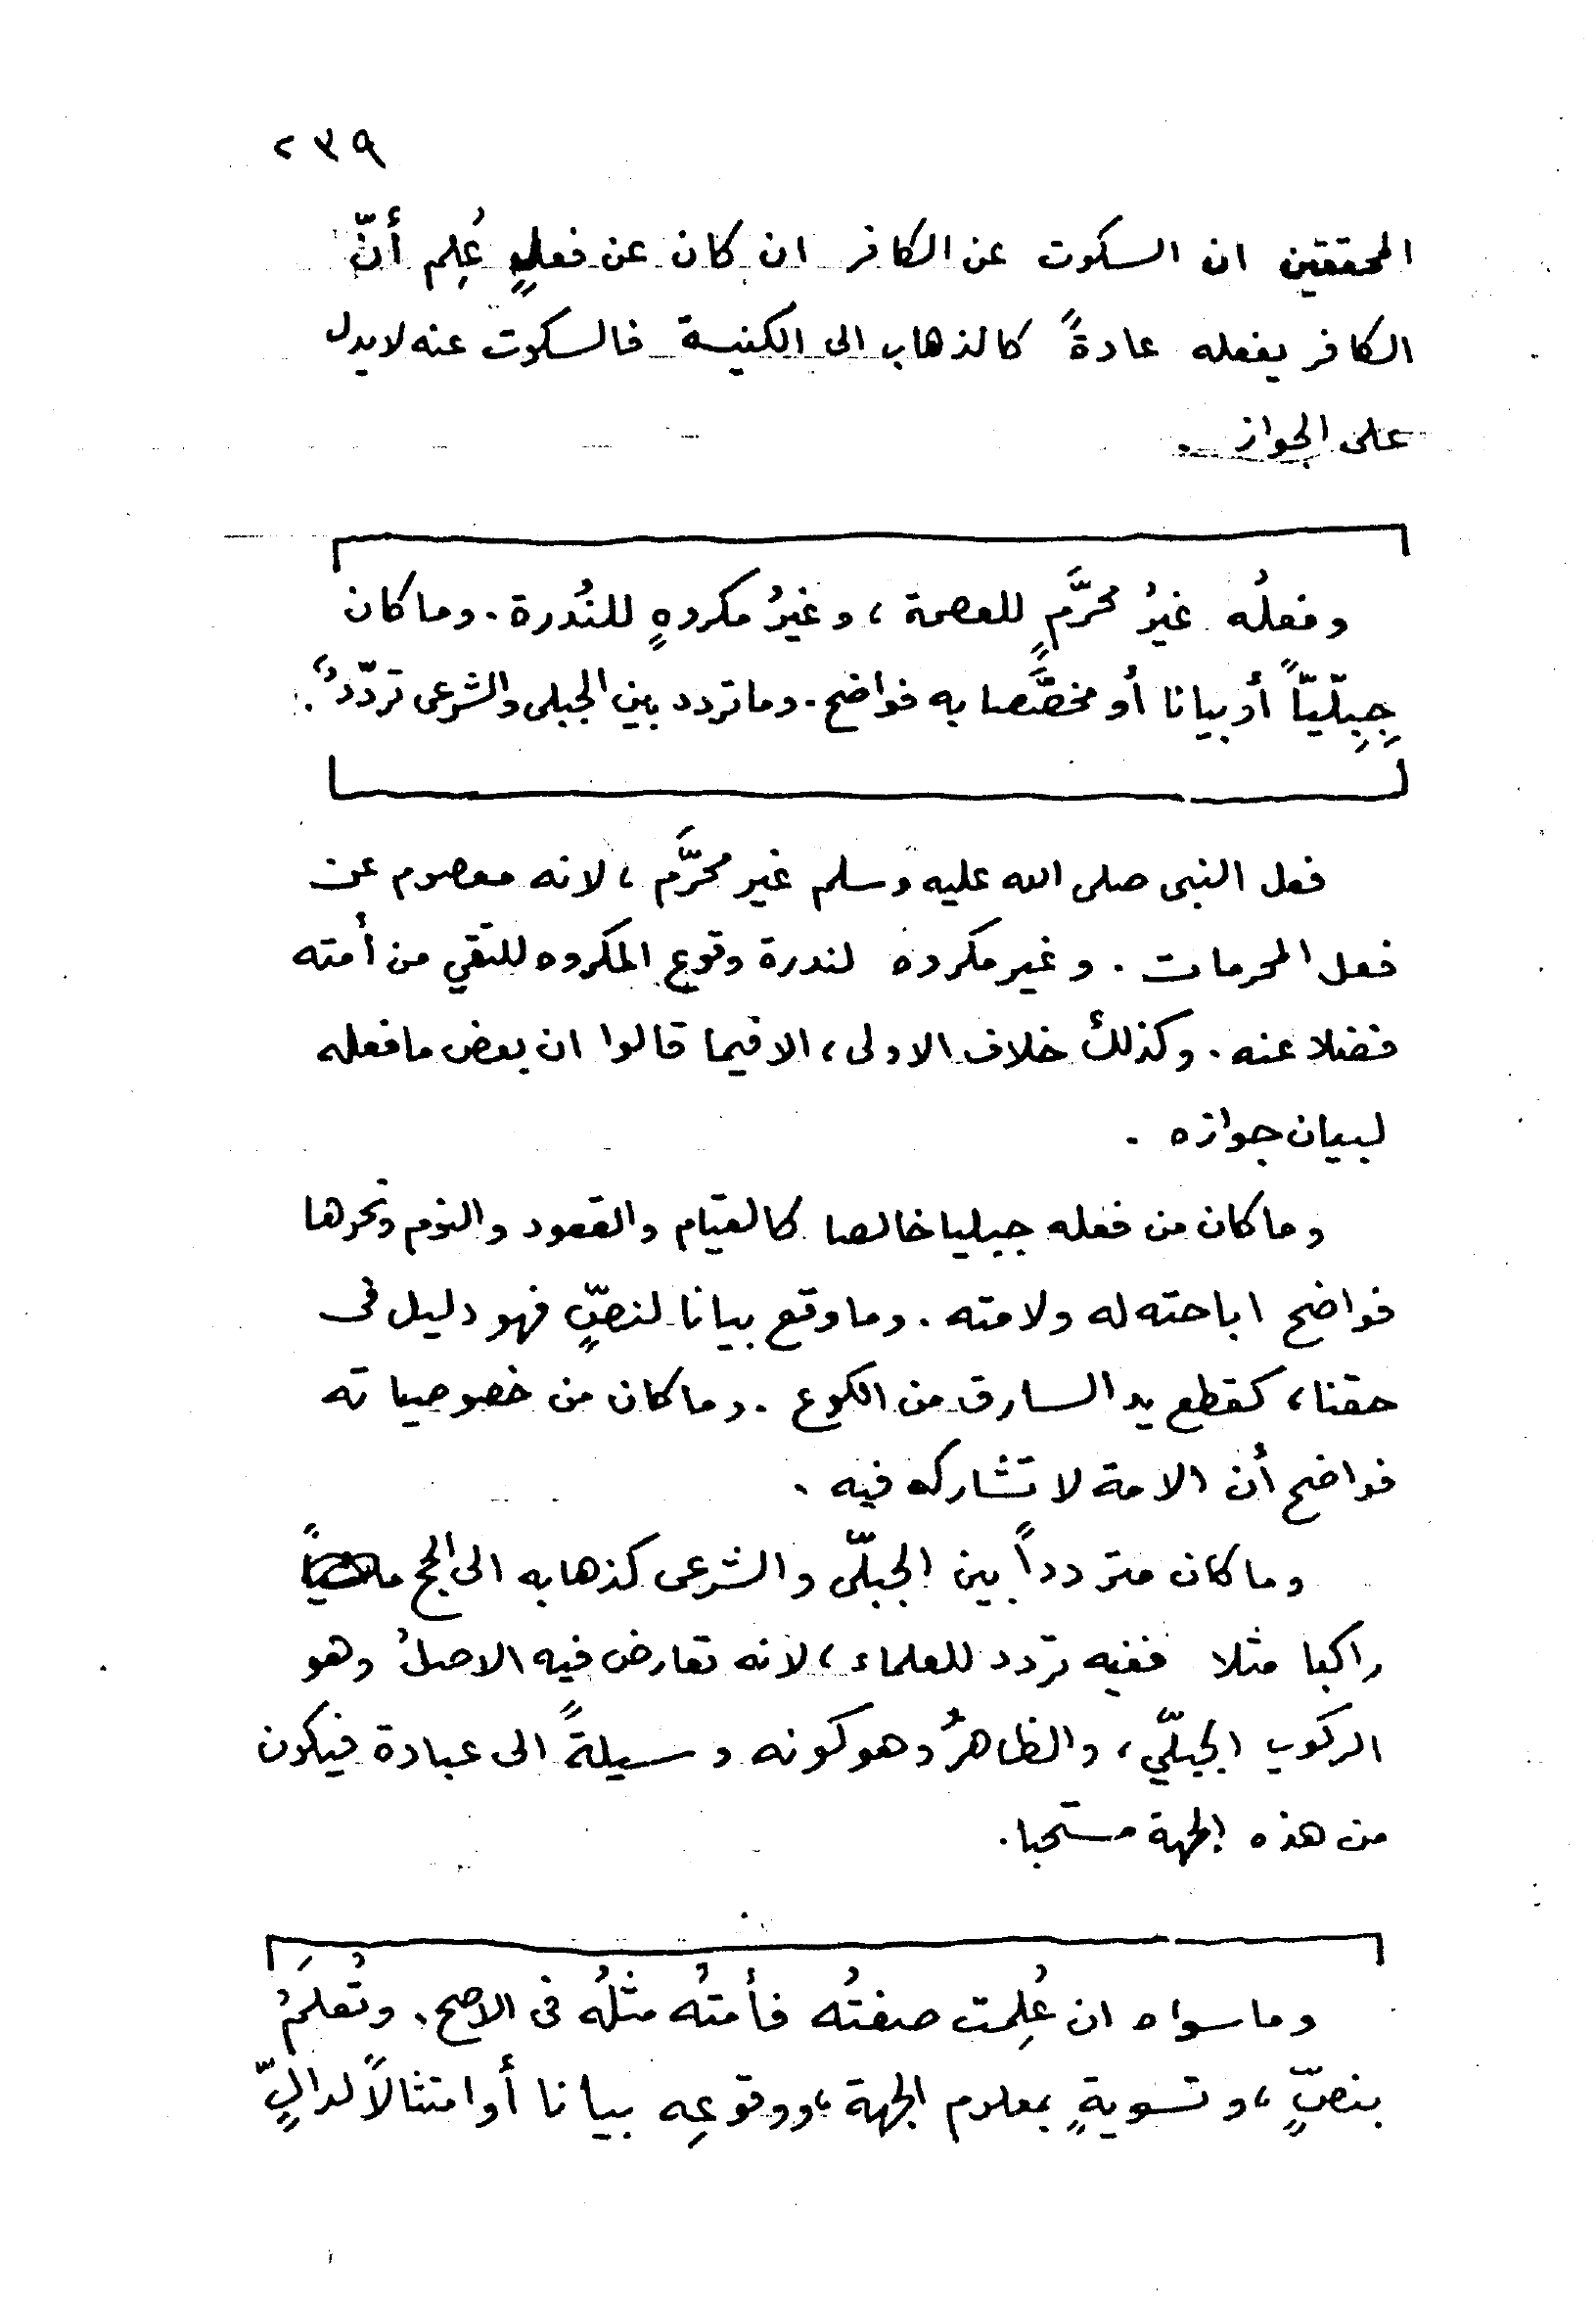 ٢٣٩
المحققين ان السكوت عن الكافر ان كان عن فعلٍ عُلِم أنّ
الكافر يفعله عادةً كالذهاب الى الكنيسة فالسكوت عنه لا يدل
على الجواز .
وفعلُه غيرُ محرَّمٍ للعصمة ، وغيرُ مكروهٍ للنُدرة . وما كان
جِبِلّيّاً أو بيانا أو مخصَّصا به فواضح . وما تردد بين الجبلى والشرعى تردّدٌ .
فعل النبى صلى الله عليه وسلم غير محرَّم ، لانه معصوم عن
فعل المحرمات . وغير مكروه لندرة وقوع المكروه للتقي من أمته
فضلا عنه . وكذلك خلاف الاولى ، الا فيما قالوا ان بعض ما فعله
لبيان جوازه .
وما كان من فعله جبليا خالصا كالقيام والقعود والنوم ونحوها
فواضح اباحته له ولامته . وما وقع بيانا لنصٍّ فهو دليل فى
حقنا ، كقطع يد السارق من الكوع . وما كان من خصوصياته
فواضح أن الامة لا تشاركه فيه .
وما كان مترددا بين الجبلّى والشرعى كذهابه الى الحج
راكبا مثلا ففيه تردد للعلماء ، لانه تعارض فيه الاصلُ وهو
الركوب الجبلّي ، والظاهرُ وهو كونه وسيلةً الى عبادة فيكون
من هذه الجهة مستحبا .
وما سواه ان عُلِمت صفتُه فأمتُه مثلُه فى الاصح . وتُعلَمُ
بنصٍّ ، وتسويةٍ بمعلوم الجهة ، ووقوعِه بيانا أو امتثالاً لدالٍّ